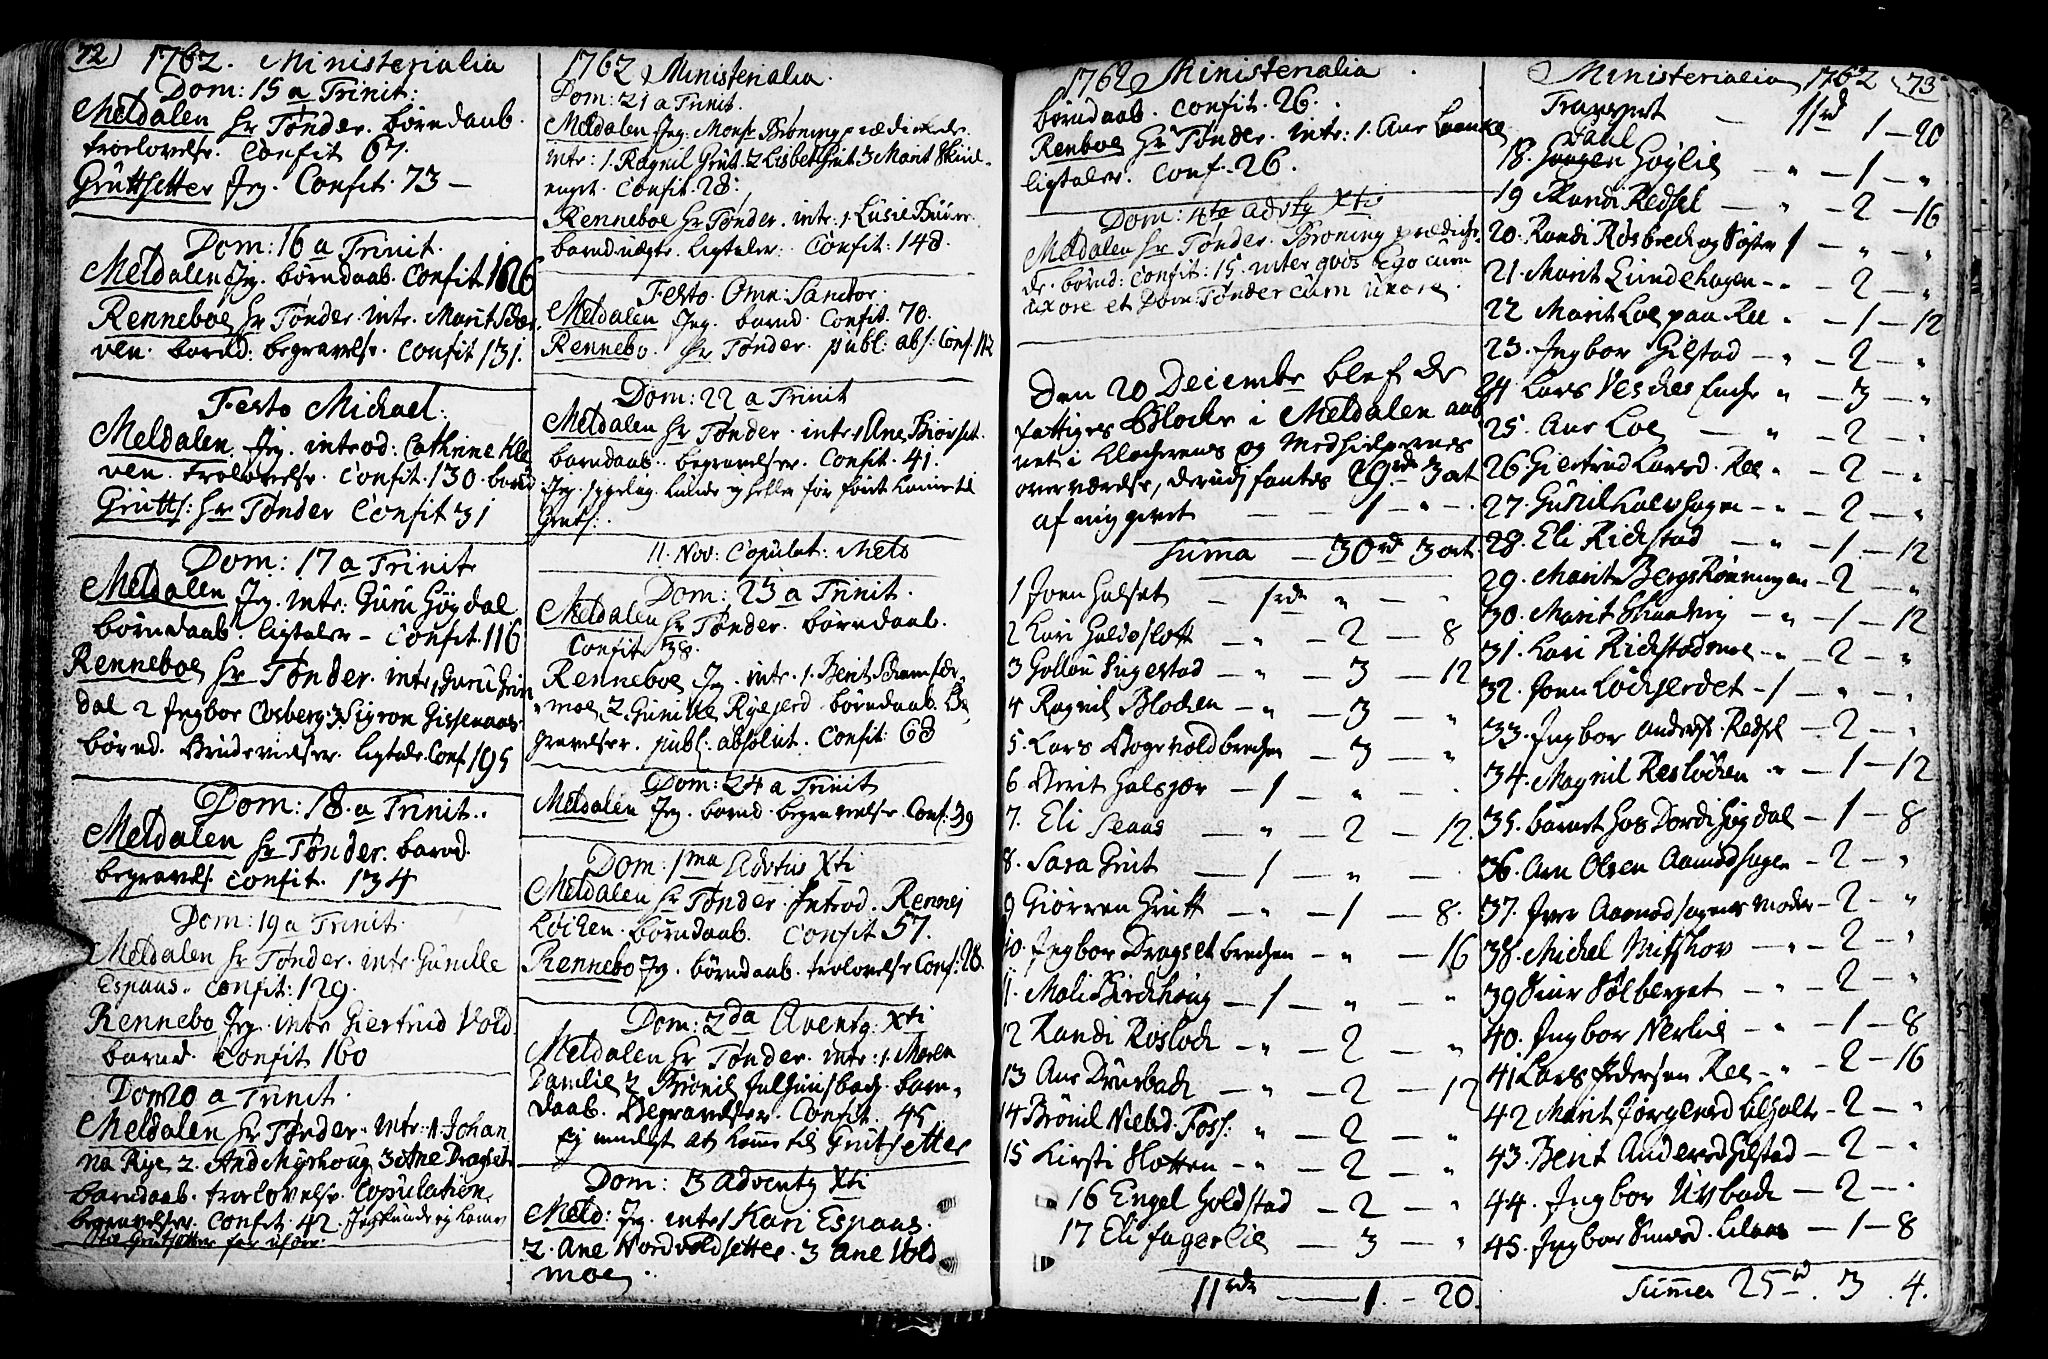 72)
1762. Ministerialia
Dom: 15 a Trinit:
Meldalen Hr Tønder. børndaab.
troelovelse. Confit 67.
Gruttsetter Jeg. Confit. 73 —
Dom: 16 a Trinit.
Meldalen Jeg. børndaab. Confit 106
Renneboe Hr Tønder. intr. Marit Skier
ven. barnd: begravelse. Confit 131.
Festo Michael:
Meldalen. Jeg. introd: Cathrine Kle
ven. trolovelse. Confit. 130. barnd
Grutts: Hr Tønder Confit 31
Dom: 17 a Trinit
Meldalen Jeg. intr: Guru Høgdal
børndaab. ligtaler — Confit. 116
Renneboe Hr Tønder. intr. 1 Guru Grin
dal 2 Ingbor Cosberg 3 Sigron Gissenaas
børnd. Brudevielser. ligtale. Conf. 195
Dom: 18. a Trinit.
Meldalen Hr Tønder. barnd.
begravels. Confit. 134
Dom: 19 a Trinit.
Meldalen Hr Tønder. intr. Gunille
Espaas. Confit: 129.
Rennebo Jeg. intr Giertrud Vold
barnd. Confit 160
Dom 20 a Trinit.
Meldalen Hr Tønder. intr: 1. Johan
na Rige 2. And Myrhoug 3 Ane Dragset
barndaab. troelovelse. Copulation
begravelser. Confit. 42. Jeg kunde ej komme
til Grutsetter for uføre.
1762 Ministerialia.
Dom: 21 a Trinit.
Meldalen Jeg. Monsr Broning prædikede.
intr: 1. Ragnil Grut. 2 Lisbet Grut 3 Marit Skiul-
enget. Confit. 28:
Renneboe Hr Tønder. intr. 1. Lusie Buur.
barnd nægte. ligtaler. Confit: 148.
Festo. Omn: Sanctor.
Meldalen Jeg. barnd. Confit. 70.
Rennebo. Hr Tønder. publ: abs: Conf. 112
Dom: 22 a Trinit
Meldalen Hr Tønder. intr 1 Ane Biørset.
barndaab. begravelser. Confit. 41.
Jeg sygelig. kunde ej heller for føret komme til
Grutts:.
11. Nov: Copulat: Meld
Dom: 23 a Trinit.
Meldalen Hr Tønder. børndaab.
Confit 38.
Renneboe Jeg. intr. 1. Berit Bramskier-
moe, 2. Gunille Ryejerd. børndaab. Be
gravelser. publ: absolut. Confit: 68
Dom: 24 a Trinit
Meldalen Jeg. barnd. begravelse. Conf: 39
Dom: 1ma Advtus Xti
Meldalen Hr Tønder. Introd. Rennej
Løchen. børndaab. Confit 57.
Rennebo Jeg. børndaab. trolovelse Conf: 28.
Dom: 2da Aventg: Xti
Meldalen Hr Tønder. intr: 1. Maren
Damlie 2 Brønil Julsiunsbach. barn-
daab. Begravelser. Confit. 45.
Ej mueligt at komme til Grutsetter
Dom: 3 Adventg Xti
Meld: Jeg. intr 1 Kari Espaas.
2. Ane Nordvoldsetter. 3 Ane Vold
moe.
1762 Ministerialia
børndaab. Confit. 26.
Renboe Hr Tønder. intr: 1. Ane Laanke
ligtaler. Conf. 26.
Dom: 4te Advtg Xti
Meldalen Hr Tønder. Broning prædicke
de. børnd: Confit: 15. inter qvos Ego cum
uxore et Dom: Tønder cum uxore.
Den 20 Decembr blef de
fattiges Blocke i Meldalen aab
net i Klocherens og Medhielpernes
overværelse, derudj fantes 29rd 3 ort
af mig givet — 1 — " — "
Suma — 30rd 3 ort.
1 Joen Halset — 1rd " — "
2 Kari Haldoslott — " — 2 — 8
3 Gollou Singestad — " — 3 — 12
4 Ragnil Blochen — " — 3 — "
5. Lars Hogevoldbrechen — " — 3 — "
6 Berit Halsgier — 1 — " — "
7. Eli Seaas — " — 2 — 12
8. Sara Grut — 1 — " — "
9 Giørren Grutt — " — 1 — 8.
10. Ingbor Dragsetbrechen — " — " — 16
11. Mali Birchhoug — 1 — " — "
12 Randi Rosloch — " — 2 — "
13 Ane Drivbach — " — 2 — 12
14 Brønil Niebd. Foss: " — 2 — "
15 Kirsti Slotten — " — 2 — "
16 Engel Goldstad — 2 — "
17 Eli fagerlie — 3 — "
11rd — 1. — 20.
Ministerialia 1762 (73
Transport — 11rd 1 — 20
Paul
18. Høglie — " — 1 — "
19 Randi Redsel — " — 2 — 16
20. Randi Rosbrech og Søster 1 — " — "
21. Marit Lundehagen — " — 2 — "
22 Marit Loe paa Ree " — 1 — 12
23. Ingbor Gilstad — " — 2 — "
24 Lars Vesches Enche " — 3 — "
25. Ane Loe — " — 2 — "
26. Giertrud Larsd. Ree " — 2 — "
27. Gunil Kalvhagen — " — 2 — "
28. Eli Richstad — " — 1 — 12
29. Marit Bergsrønningen — 2 — "
30. Marit — " — 1 — 12
31. Kari Richstadmoe — " — 2 — "
32. Joen Lochgerdet — 1 — " — "
33. Ingbor Anders. Redsel — 2 — "
34. Magnil Resløchen " — 1 — 12
35. barnet hos Dordi Høgdal — 1 — 8
36. Arn Olsen Aamodhagen — 2 — "
37. Iver Aamodhagens moder — 2 — "
38. Michel Mitshov — " — 2 — "
39 Siur Sølberget — " — 2 — "
40. Ingbor Nerlie — " — 1 — 8
41 Lars Pedersen Ree — " — 2 — 16
42 Marit Jørgensd — 2 — "
43. Berit Andersd Gilstad — 2 — "
44. Ingbor Uvbach — 2 — "
45. Ingbor Siursd. — 1 — 8
Summa 25rd. 3. 4.